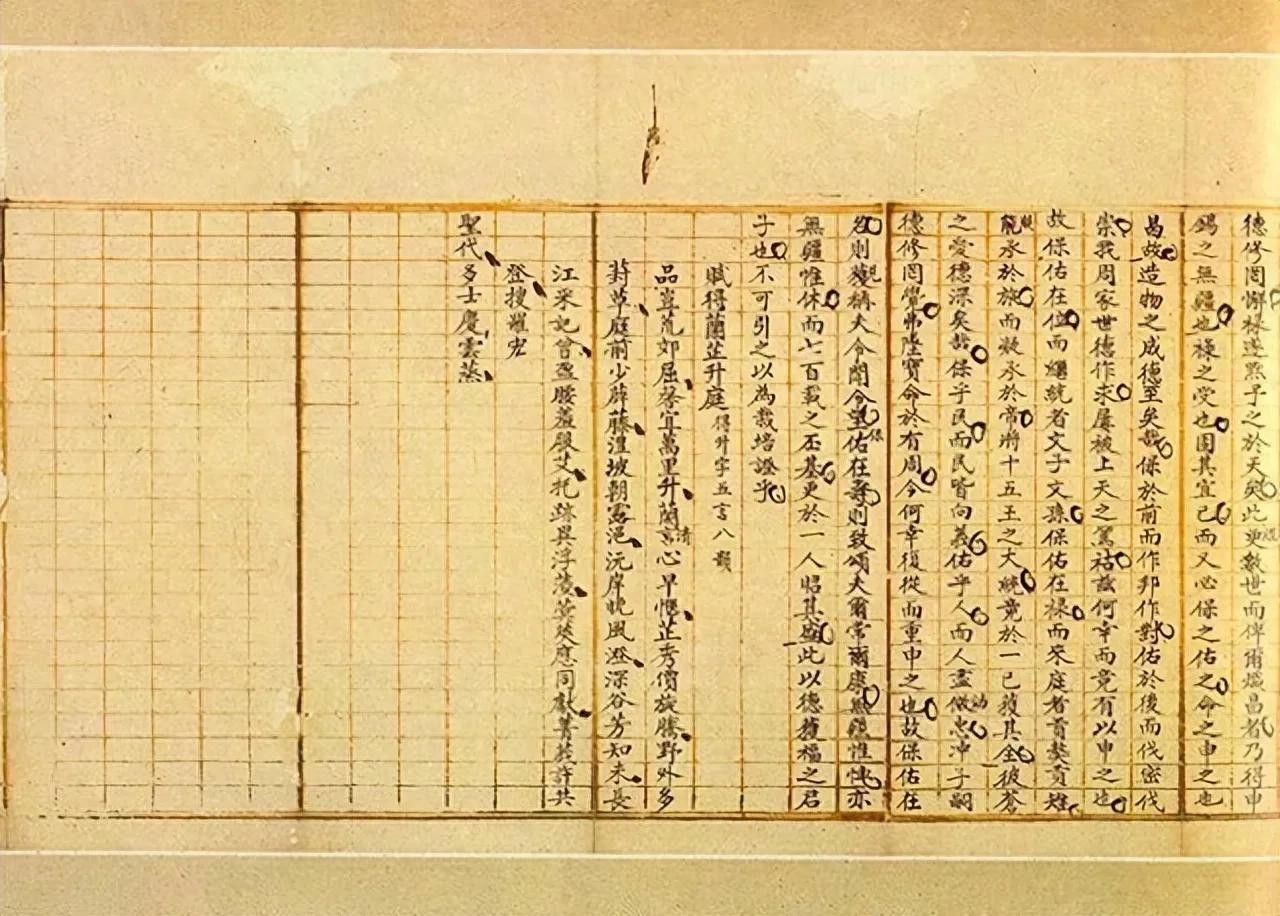 德修罔懈祿遂默予之於天矣此更數世而俾爾熾昌者乃得申
錫之無疆也祿之受也固其宜已而又必保之佑之命之申之也
昌故造物之成德至矣哉保於前而作邦作對佑於後而伐密伐
崇我周家世德作求屢被上天之篤祜茲何幸而竟有以申之也
故保佑在位而繼統者文子文孫保佑在祿而來庭者獻
承於旅而凝承於帝將十五王之大統竟於一已獲其全彼蒼
之愛德深矣哉保乎民而民皆向義佑乎人而人盡傚忠沖子嗣
德修罔覺弗墜寶命於有周今何幸復從而重申之也故保佑在
名則獲稱夫令聞令望佑在壽則致頌夫爾常爾康無疆惟恤亦
無疆惟休而七百載之丕基更於一人昭其盛此以德獲福之君
子也不可引之以為栽培證乎
賦得蘭芷升庭 得升字五言八韻
品豈荒郊屈 宜萬里升蘭言心早愜芷秀價旋騰野外多
葑草庭前少薜藤澧坡朝露浥沅岸晚風澄深谷芳知未長
江采記曾盈腰羞艾托跡異浮菱莢應同獻菁莪許共
登搜羅宏
聖代多士慶雲蒸